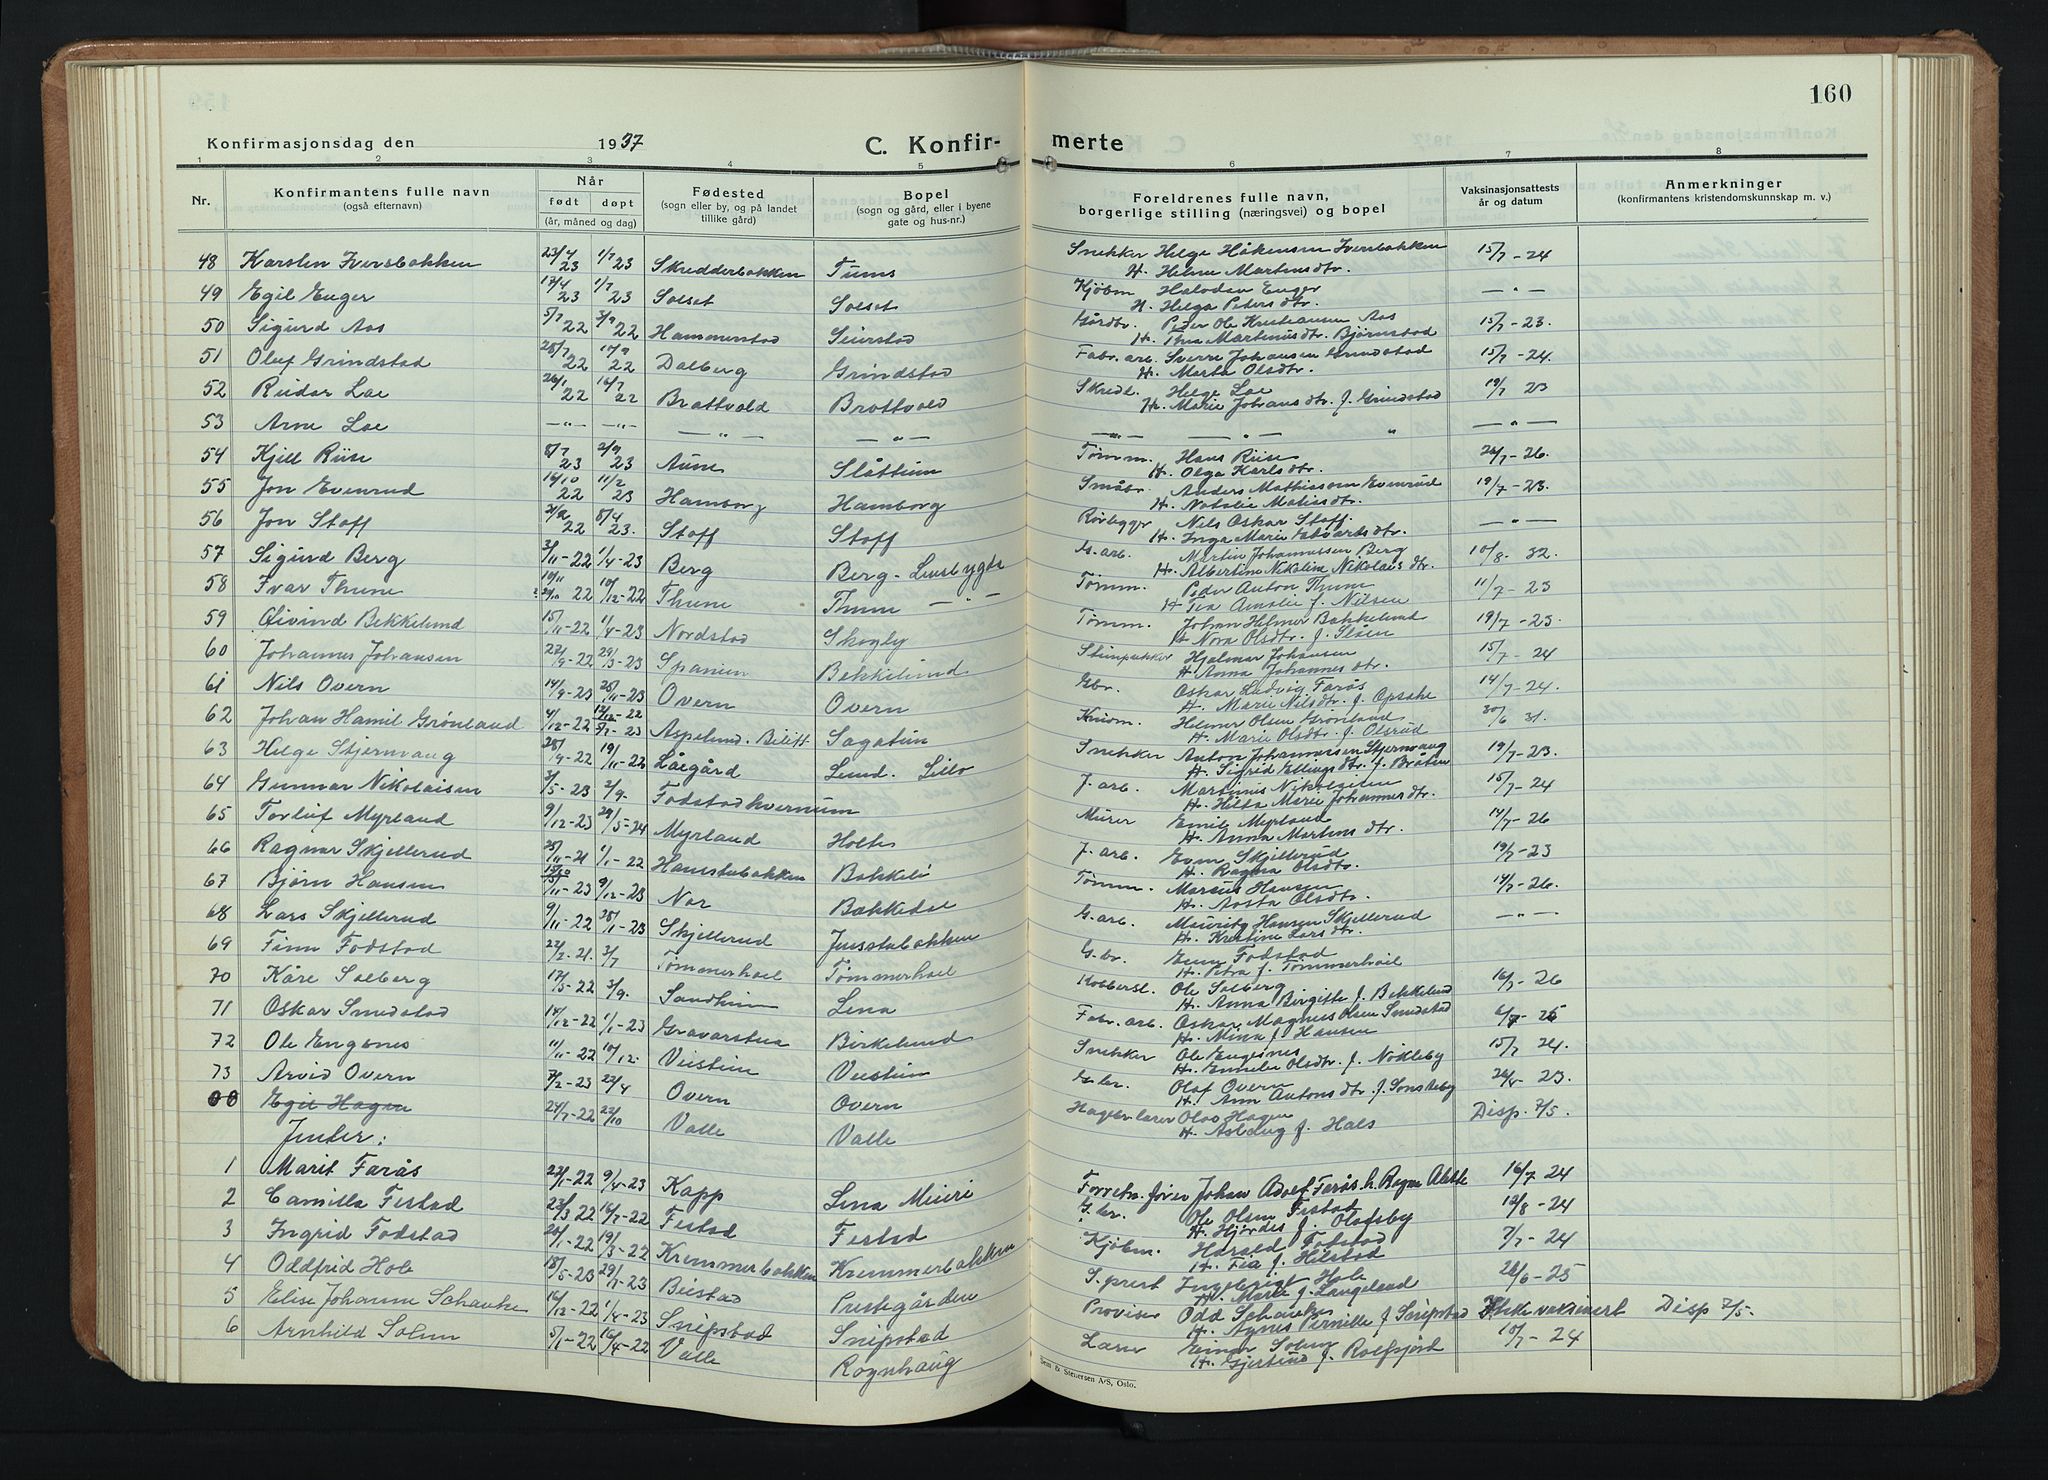 160
Konfirmasjonsdag den 1937 C. Konfir- merte
1 2 3 4 5 6 7 8
Nr. Konfirmantens fulle navn (også efternavn) Når født døpt (år, måned og dag) Fødested (sogn eller by, og på landet tillike gård) Bopel (sogn og gård, eller i byene gate og hus-nr.) Foreldrenes fulle navn, borgerlige stilling (næringsvei) og bopel Vaksinasjonsattests år og datum Anmerkninger (konfirmantens kristendomskunnskap m. v.)
48 Karsten Iversbakken 23/4 23 1/7 23 Skredderbakken Tums Snekker Helge Håkensen Iversbakken 15/7-24
H. Helene Martinsdtr.
49 Egil Enger 17/4 23 1/7 23 Solset Solset Kjøbm Halvdan Enger -"-
H. Helga Pedersdtr.
50 Sigurd Aas 5/7 22 3/9 22 Hammerstad Seierstad Gårdbr. Peder Ole Kristiansen Aas 15/7-23.
H. Thea Martinusdtr. Bjørnstad
51 Oluf Grindstad 28/7 22 17/9 22 Dalberg Grindstad Fabr. arb. Sverre Johansen Grindstad 15/7-24.
H. Marta Olsdtr.
52 Reidar Loe 26/1 22 16/7 22 Brattvold Brattvold Skredd. Helge Loe 19/7 23
H. Marie Johansdtr. f. Grindstad
53 Arne Loe -"- -"- -"- -"- -"- -"- " -"-
54 Kjell Riise 8/7 23 2/9 23 Aune Slåttum Tømm. Hans Riise 26/7-26.
H. Olga Karlsdtr.
55 Jon Evenrud 16/10 22 11/2 23 Hamborg Hamborg Småbr. Anders Mathissen Evenrud 19/7-23.
H. Natalie Matisdtr.
56 Jon Staff 21/12 22 8/4 23. Staff Staff Rørleggr Nils Oskar Staff. -"-
H. Inga Marie Edvartsdtr.
57 Sigurd Berg 3/11-22 1/4-23 Berg Berg-Lensbygda G. arb. Martin Johannessen Berg 10/8-32.
H. Albertine Nikoline Nikolaisdtr.
58 Ivar Thune 10/11 22 10/12-22 Thune Thune -"- Tømm. Peder Anton Thune 11/7-23
H Tea Amalie f. Nilsen
59 Øivind Bekkelund 15/11-22 1/4-23 Nordstad Skogly Tømm. Johan Helmer Bakkelund 19/7-23.
H Nora Olsdtr. f. Slåen
60 Johannes Johansen 22/9-22 29/3-23 Spanien Bekkelund Hjalmar Johansen 15/7-24
H Anna Johannesdtr.
61 Nils Overn 14/9-23 25/11-23 Overn Overn Gbr. Oskar Ludvig Farås 14/7-24.
H. Marie Nilsdtr. f. Opsahl
62 Johan Hamil Grønland 4/12-22 Aspelund. Bilitt Sagatun Helmer Olsen Grønland 30/6 31.
H. Marie Olsdtr. f. Olsrud
63 Helge Stjernvang 28/9-22 19/11-22 Låegård Lund. Lillo Snekker Anton Johannessen Stjernvang 19/7-23.
H. Sigrid Ellingsdtr. f. Bråten
64 Gunnar Nikolaisen 31/5-23 2/9. Fodstadkvernum J. arb. Martinus Nikolaisen 15/7-24
H. Hilda Marie Johannesdtr.
65 Torleif Myrland 9/12-23 29/5-24 Myrland Holte Murer Emil Myrland 14/7-26
H. Anna Martinsdtr.
66 Ragnar Skjellerud 25/11-21 1/1-22 Hanestubakken Bakkeli J. arb. Even Skjellerud 19/7-23
H. Ragna Olsdtr.
67 Bjørn Hansen 15/11-23 9/12-23 Nor Bakkedal Tømm. Marcus Hansen 14/7-26.
H. Aasta Olsdtr.
68 Lars Skjellerud 9/11-22 28/1-23 Skjellerud Juustubakken G. arb. Mauritz Hansen Skjellerud -"-
H. Kristine Larsdtr.
69 Finn Fodstad 22/2-21. 3/7 Tømmerhoel Tømmerhoel G. br. Even Fodstad
H. Petra f. Tømmerhoil
70 Kåre Solberg 17/5-22 3/9. Sandheim Lena Kobbersl. Ole Solberg 16/7-26
H. Anna Birgitte f. Bekkelund
71 Oskar Smedstad 14/12-22 1/1-23 Gravarstua Fabr. arb. Oskar Magnus Olsen Smedstad
H. Mina f Hansen
72 Ole Engenes 11/11-22 10/12. Veistein Birkelund Snekker Ole Engesnes 15/7 24.
H. Emelie Olsdtr. f. Nøkleby
73 Arvid Overn 7/2-23 22/4 Overn Veistein G. br. Olaf Overn 26/8-23.
H. Ann Antonsdtr. f. Sønsteby
00 Egil Hagen 24/7-22 22/10 Valle Valle Hagebr. lærer Olav Hagen Disp. 7/5.
H. Aslaug f. Hals
Jenter:
1 Marit Farås 22/1-22 9/4-23 Kapp Lena Meieri Forretn. fører Johan Adolf Farås h. Ragna Alette 16/7 24
2 Camilla Festad 23/3 22 16/7-22 Festad Festad G. br. Ole Olsen Festad 12/8-24
H. Hjørdis f. Olafsby
3 Ingrid Fodstad 20/1-22 19/3-22 Kremmerbakken Kremmerbakken Kjøbm. Harald Fodstad 7/7-24
H. Fia f. Hilstad
4 Oddfrid Hole 18/5-23 Beistad Prestegården S. prest Ingebrigt Hole 26/6-25
H. Marie f. Langeland
5 Elise Johanne Schanke 16/12-22 1/4-23 Snipstad Snipstad Provisor Odd Schanke Ikke vaksinert Disp 7/5.
H. Agnes Pernille f. Snipstad
6 Arnhild Solum 5/1-22 16/4-22 Valle Rognhaug Lærer Einar Solum 10/7-24
H. Gjertrud f. Rolfsjord
Sem & Stenersen A/S, Oslo.